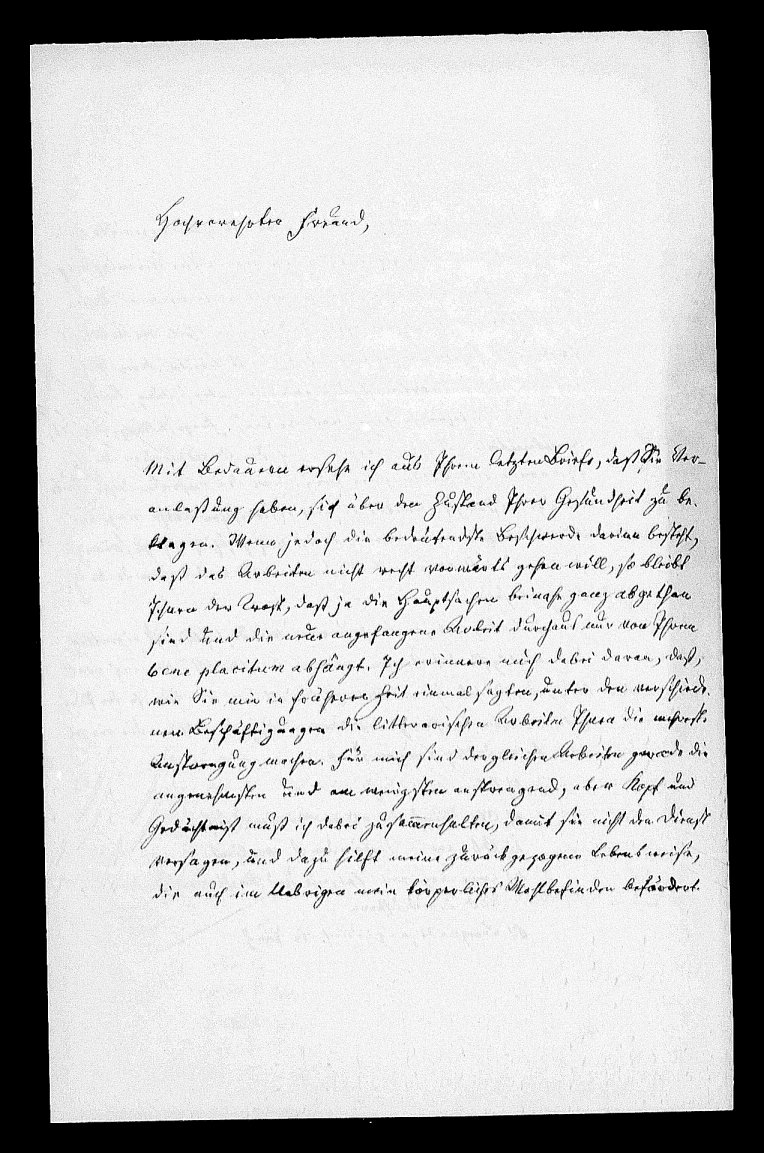 Hochverehrter Freund,
Mit Bedauern ersehe ich aus Ihrem letzten Briefe, daß Sie Ver-
anlaßung haben, sich über den Zustand Ihrer Gesundheit zu be-
klagen. Wenn jedoch die bedeutendste Beschwerde darinn besteht,
daß das Arbeiten nicht recht vorwärts gehen will, so bleibt
Ihnen der Trost, daß ja die Hauptsachen beinahe ganz abgethan
sind und die neue angefangene Arbeit durchaus nur von Ihrem
bene placitum abhängt. Ich erinnere mich dabei daran, daß,
wie Sie mir in früherer Zeit einmal sagten, unter den verschiede-
nen Beschäftigungen die litterarischen Arbeiten Ihnen die mehreste
Anstrengung machen. Für mich sind dergleichen Arbeiten gerade die
angenehmsten und am wenigsten anstrengend, aber Kopf und
Gedächtniß muß ich dabei zusammenhalten, damit sie nicht den Dienst
versagen, und dazu hilft meine zurückgezogene Lebensweise,
die auch im Uebrigen mein körperliches Wohlbefinden befördert.